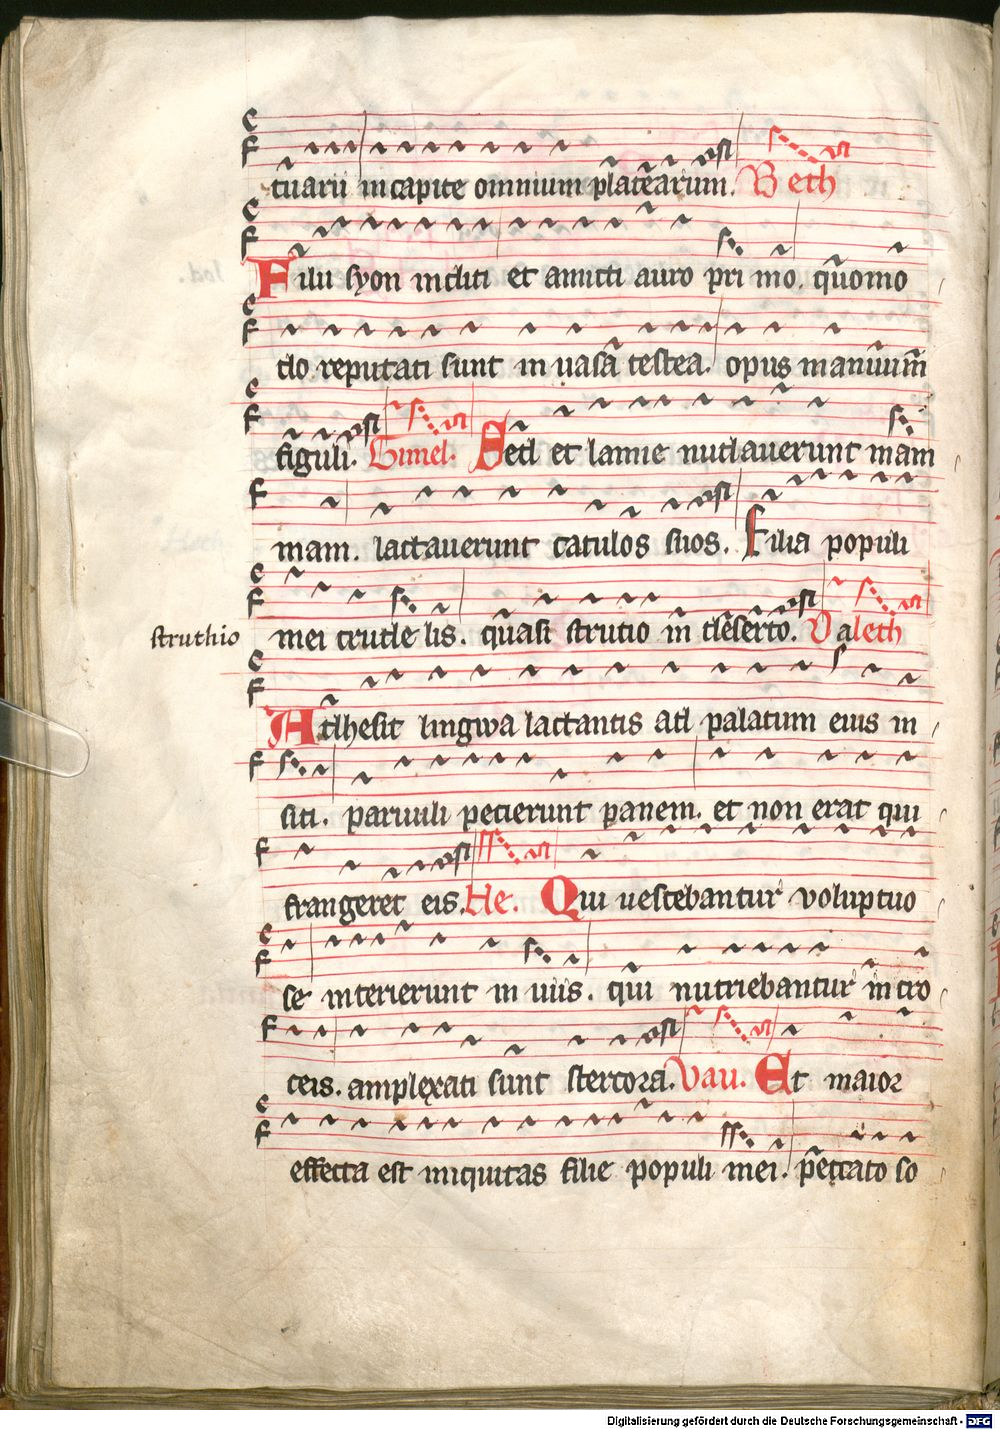 tuarii in capite omnium platearum. Beth
Filii syon incliti et amicti auro pri mo. quomo
do reputati sunt in uasa testea. opus manuum
figuli. Gimel. Sed et lamie nudauerunt mam
mam. lactauerunt catulos suos. Filia populi
mei crude lis. quasi strutio in deserto. Daleth
struthio
Adhesit lingwa lactantis ad palatum eius in
siti. paruuli pecierunt panem. et non erat qui
frangeret eis. He. Qui uescebantur voluptuo
se interierunt in uiis. qui nutriebantur in cro
ceis. amplexati sunt stercora. Vau. Et maior
effecta est iniquitas filie populi mei. peccato so
Digitalisierung gefördert durch die Deutsche Forschungsgemeinschaft - DFG